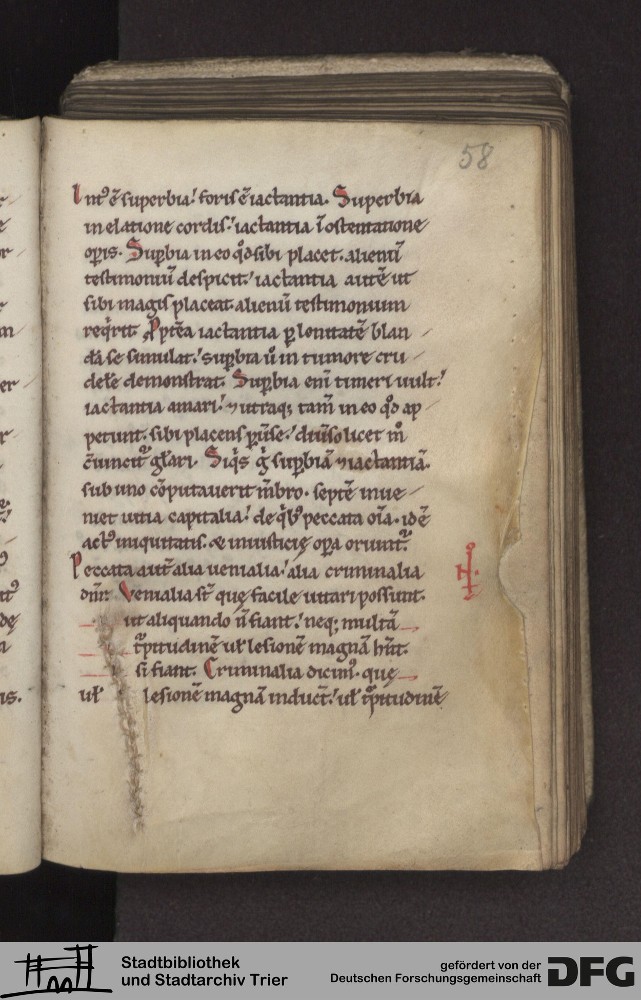 58
Intꝰ ē superbia. foris ē iactantia. Superbia
in elatione cordis. iactantia ī ostentatione
opis. Supbia in eo qd sibi placet. alienū
testimoniū despicit. iactantia autē ut
sibi magis placeat alienū testimonium
reqrit. Pptea iactantia p lonitatē blan
dā se simulat. supbia ū in tumore cru
dele demonstrat. Supbia eni timeri uult.
iactantia amari. ⁊ utraq; tam in eo qd ap
petunt. sibi placens
Siqs g supbiā ⁊ iactantiā
sub uno cōputauerit mbro. septē inue
niet uitia capitalia. de qbꝰ peccata oīa. idē
actꝰ iniquitatis. æ iniusticię opa oriunt.
Peccata aut alia uenialia. alia criminalia
dnr. Venialia st quę facile uitari possunt.
ut aliquando n fiant. neq; multā
tpitudinē ul lesionē magnā hnt.
si fiant. Criminalia dicimꝰ. quę
ul lesionē magnā induct. ul tpitudinē
Stadtbibliothek
und Stadtarchiv Trier
gefördert von der
Deutschen Forschungsgemeinschaft
DFG